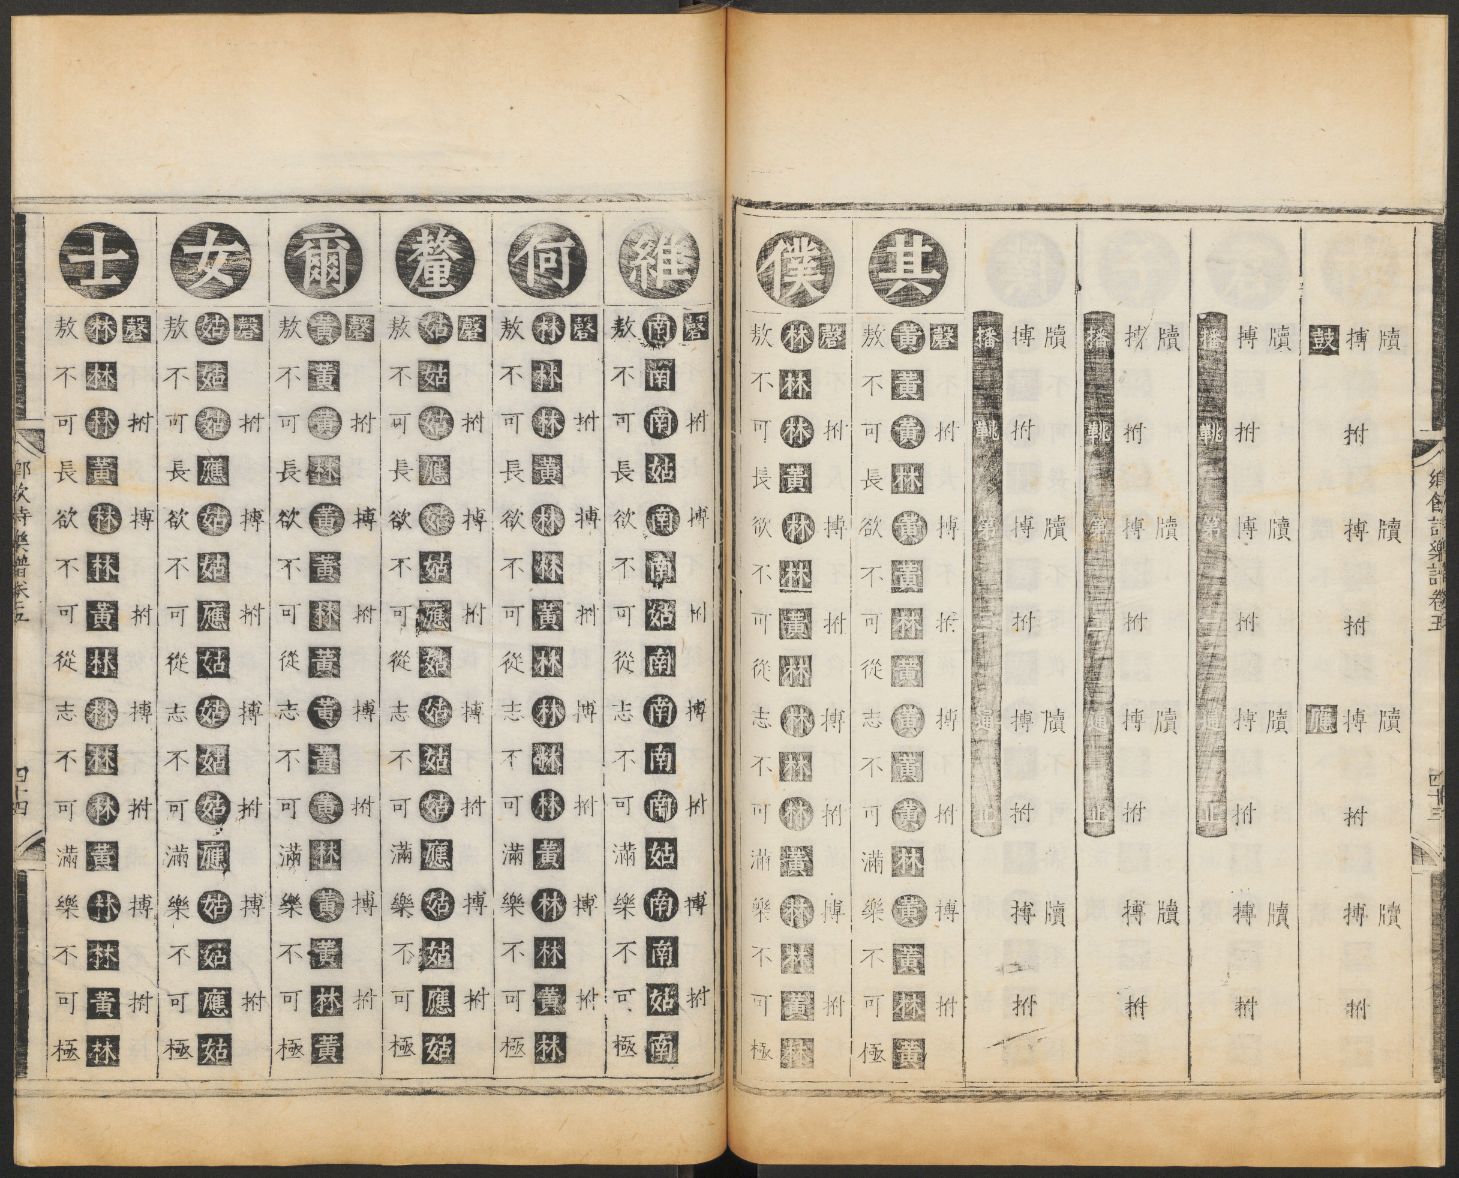 鄉飲詩樂譜卷五
四十三
牘牘牘牘
搏拊搏拊搏拊搏拊
鼓應
牘牘牘牘
搏拊搏拊搏拊搏拊
播鞉第一通止
牘牘牘牘
搏拊搏拊搏拊搏拊
播鞉第二通止
牘牘牘牘
搏拊搏拊搏拊搏拊
播鞉第三通止
其
磬拊搏拊搏拊搏拊
黃黃黃林黃黃林黃黃黃黃林黃黃林黃
敖不可長欲不可從志不可滿樂不可極
僕
磬拊搏拊搏拊搏拊
林林林黃林林黃林林林林黃林林黃林
敖不可長欲不可從志不可滿樂不可極
維
磬拊搏拊搏拊搏拊
南南南姑南南姑南南南南姑南南姑南
敖不可長欲不可從志不可滿樂不可極
何
磬拊搏拊搏拊搏拊
林林林黃林林黃林林林林黃林林黃林
敖不可長欲不可從志不可滿樂不可極
釐
磬拊搏拊搏拊搏拊
姑姑姑應姑姑應姑姑姑姑應姑姑應姑
敖不可長欲不可從志不可滿樂不可極
爾
磬拊搏拊搏拊搏拊
黃黃黃林黃黃林黃黃黃黃林黃黃林黃
敖不可長欲不可從志不可滿樂不可極
女
磬拊搏拊搏拊搏拊
姑姑姑應姑姑應姑姑姑姑應姑姑應姑
敖不可長欲不可從志不可滿樂不可極
士
磬拊搏拊搏拊搏拊
林林林黃林林黃林林林林黃林林黃林
敖不可長欲不可從志不可滿樂不可極
鄉飲詩樂譜卷五
四十四